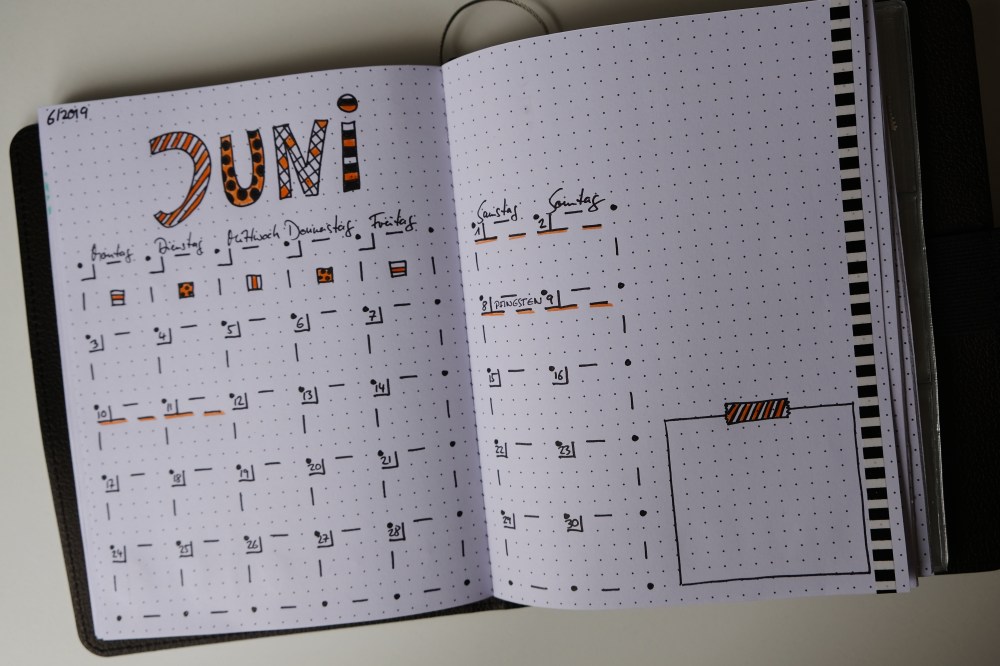 6/2019
JUNI
Montag Dienstag Mittwoch Donnerstag Freitag
3 4 5 6 7
10 11 12 13 14
17 18 19 20 21
24 25 26 27 28
Samstag Sonntag
1 2
8 PFINGSTEN 9
15 16
22 23
29 30